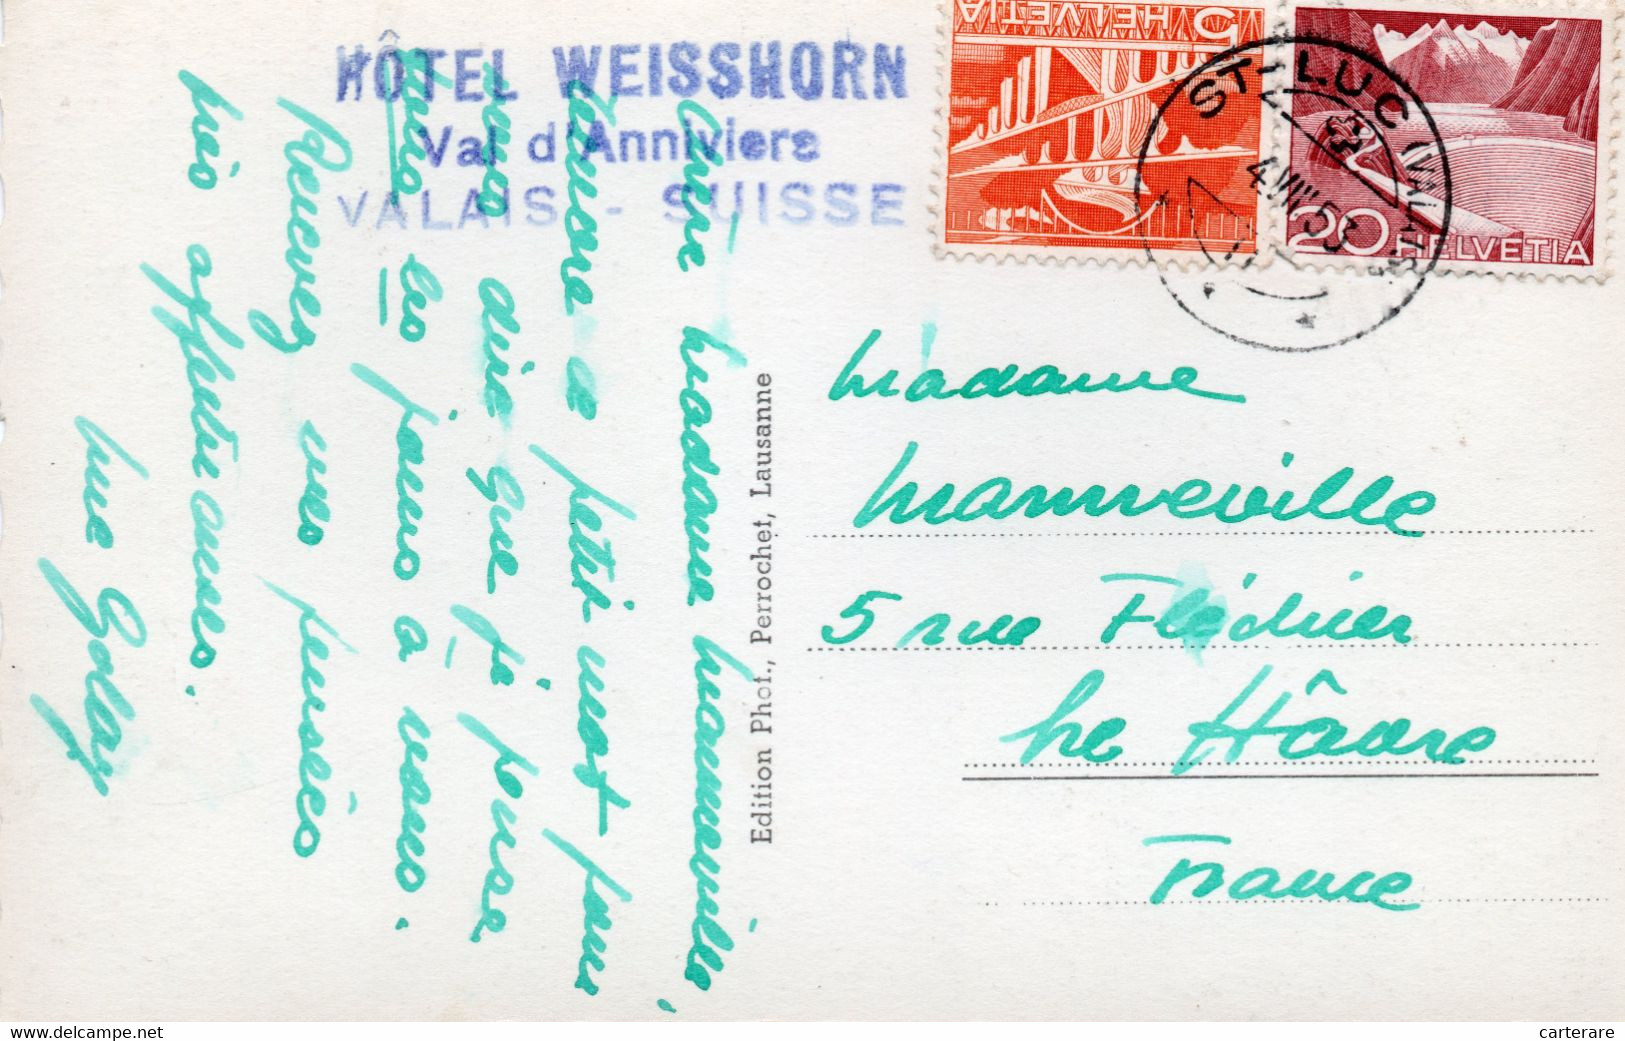 HÔTEL WEISSHORN
Val d'Anniviers
VALAIS - SUISSE
5 HELVETIA
20 HELVETIA
ST-LUC (VALAIS)
4.VIII.53
Chère Madame Manneville,
Encore un petit mot pour
vous dire que je pense
tous les jours à vous.
Recevez mes pensées
très affectueuses.
Mme Golay
Edition Phot., Perrochet, Lausanne
Madame
Manneville
5 rue Fléchier
Le Hâvre
France
www.delcampe.net
carterare